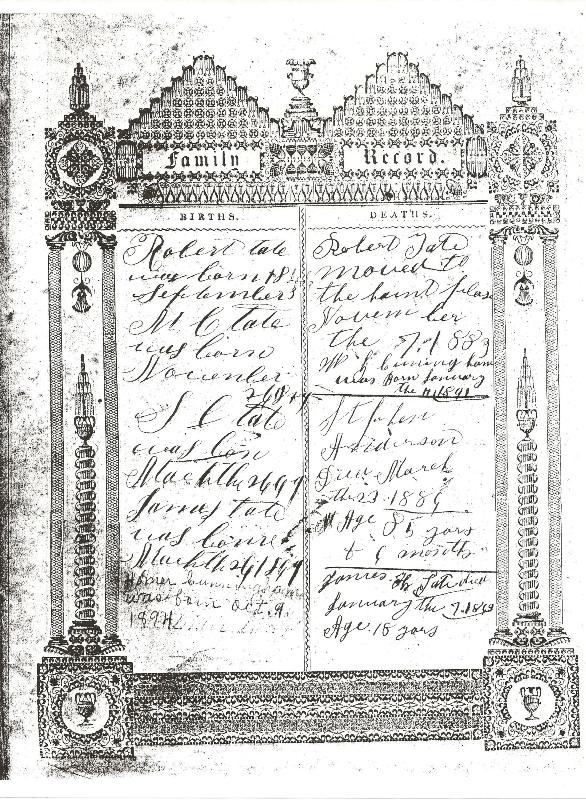 Family Record.
BIRTHS.
Robert tate
was born 18
September
M C tate
was born
November
26
S C tate
was bon
Machth 26
James tate
was bonn
Machth 26 1849
Homer cunningham
was born oct. 9.
1894
DEATHS.
Robert Tate
moved to
the hount place
November
the 7. 1883
W. J. cuningham
was Born January
the 11 1891
Stephen
Anderson
Diew March
the 23 1886
Age 85 years
& 6 months
James H Tate died
January the 7. 18
Age 18 years